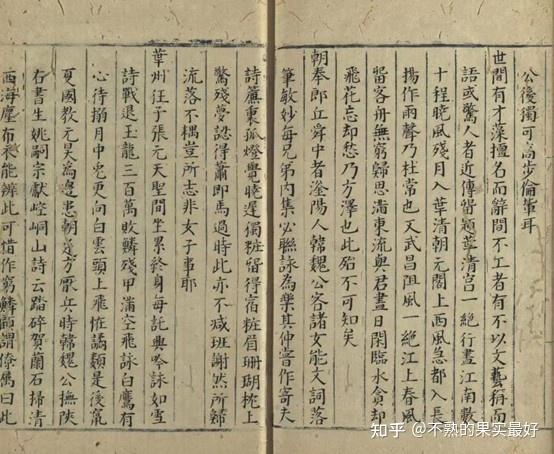 公後獨可高步倫輩耳
世間有才藻擅名而辭間不工者有不以文藝稱而
語或驚人者近傳留題華清宮一絕行盡江南數
十程曉風殘月入華清朝元閣上西風急都入長
揚作雨聲乃杜常也又武昌阻風一絕江上春風
留客舟無窮歸思滿東流與君盡日閑臨水貪却
飛花忘却愁乃方澤也此殆不可知矣
朝奉郎丘舜中者滏陽人韓魏公客諸女能文詞落
筆敏妙每兄弟内集必聯詠為樂其仲嘗作寄夫
詩簾裏孤燈覺曉遲獨粧留得宿粧眉珊瑚枕上
驚殘夢認得蕭郎馬過時此亦不咸班謝然所歸
流落不偶豈所志非女子事耶
華州狂子張元天聖間坐累終身每託興吟詠如雪
詩戰退玉龍三百萬敗鱗殘甲滿空飛詠白鷹有
心待搦月中兔更向白雲頭上飛恠譎類是後竄
夏國教元昊為邊患朝廷方厭兵時韓魏公撫陝
右書生姚嗣宗獻崆峒山詩云踏碎賀蘭石掃清
西海塵布衣能辦此可惜作窮鱗顧謂僚屬曰此
知乎 @不熟的果实最好